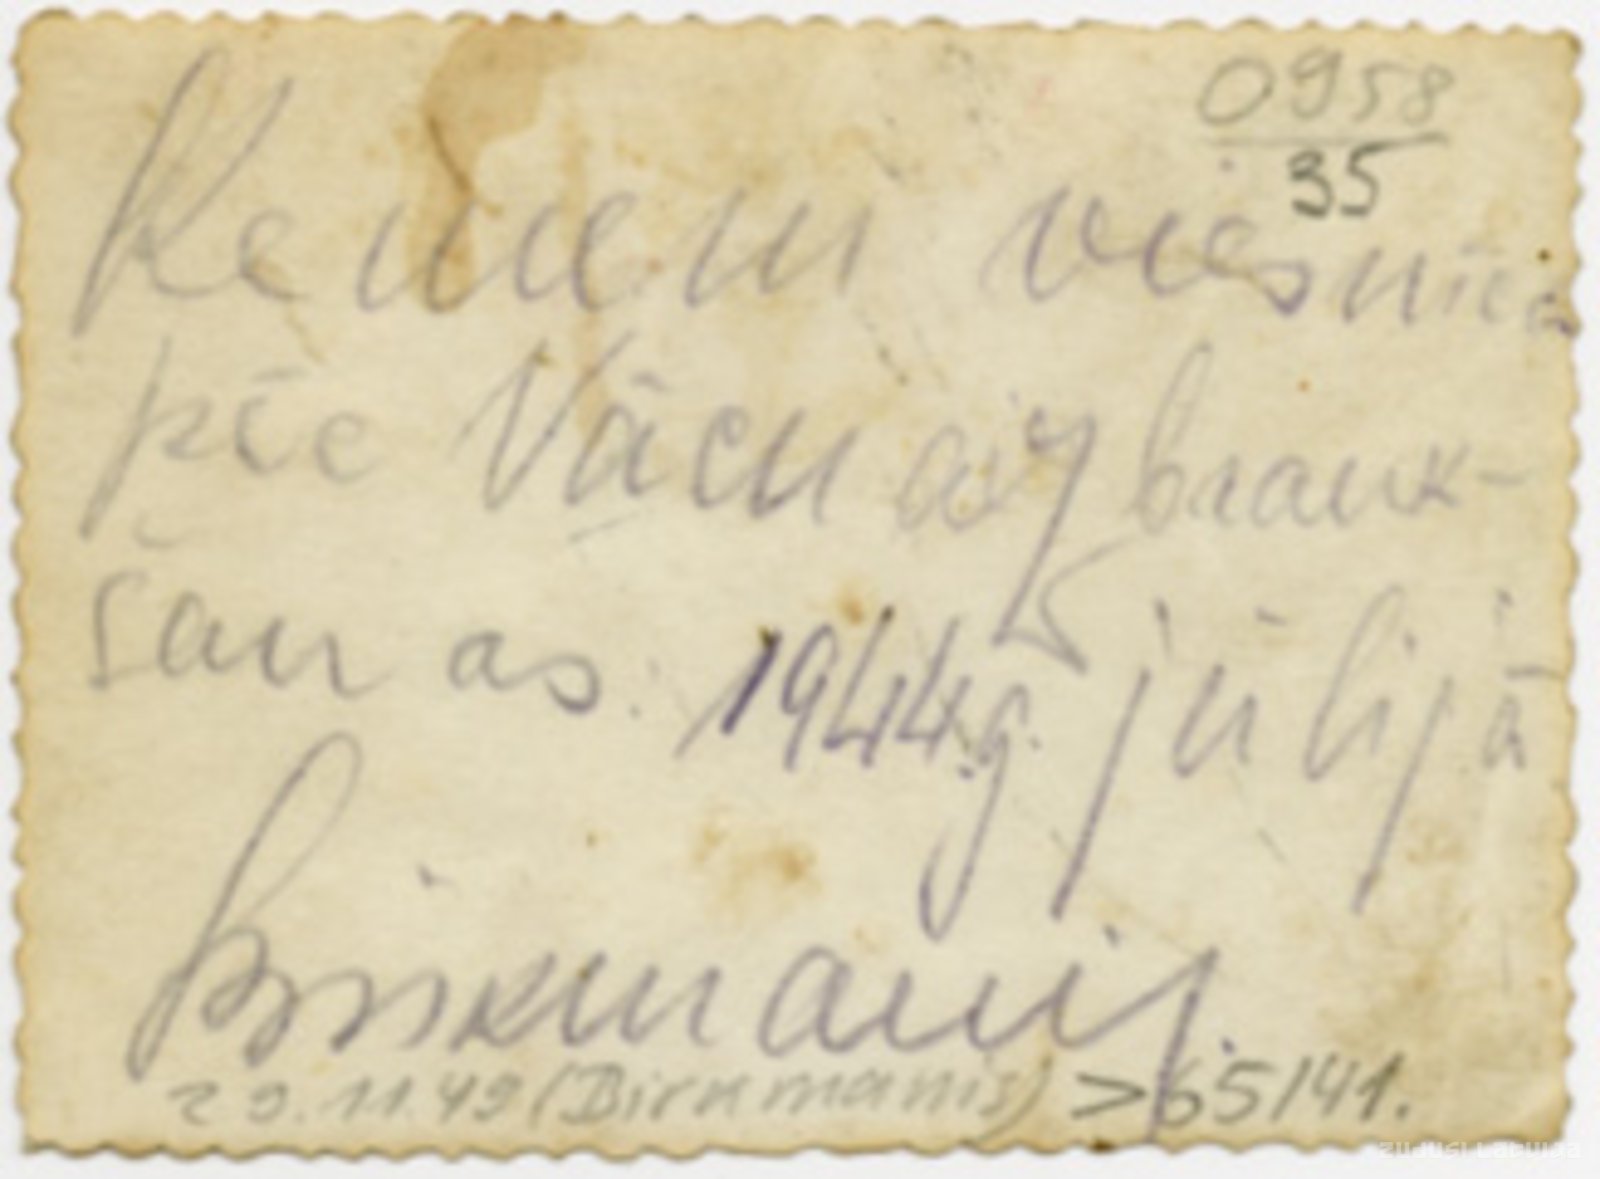 0958
35
Ķemeri viesnīca
pie Vācu aizbrauk-
šanas. 1944.g. jūlijā
Birkmanis.
29.11.49 (Birkmanis) >65/41.
ZUDUSI LATVIJA